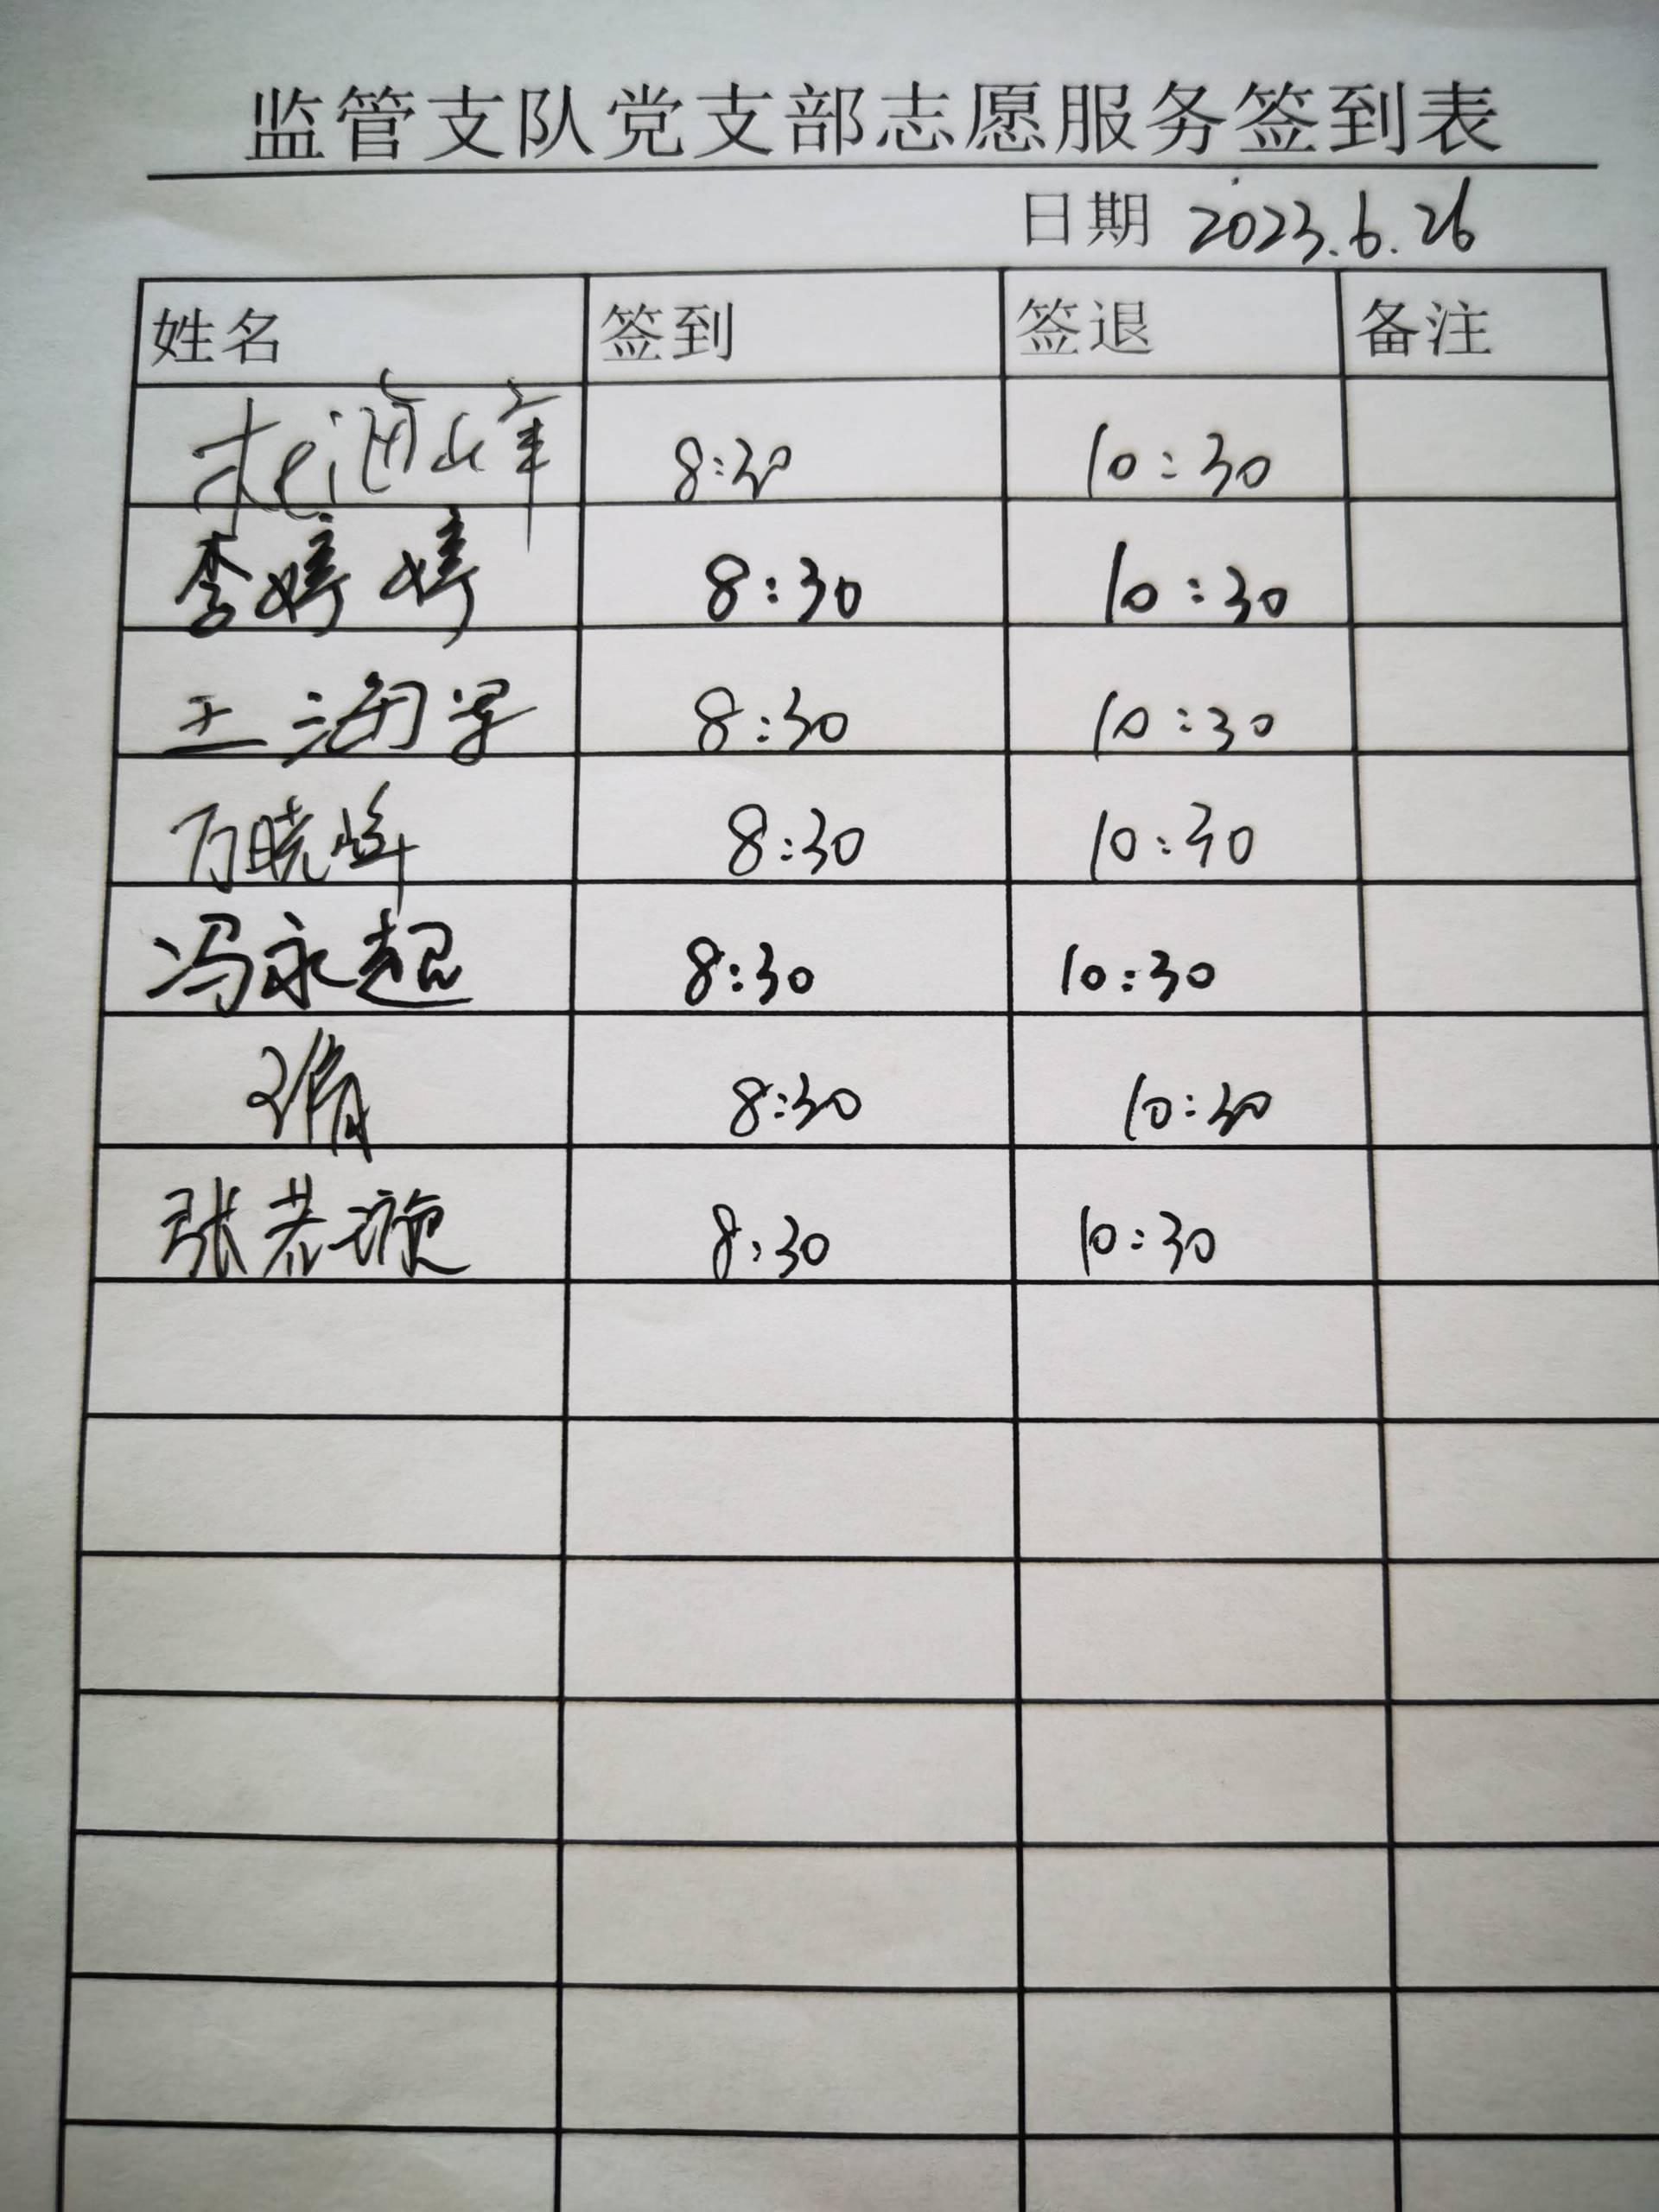 监管支队党支部志愿服务签到表
日期 2023.6.26
姓名 签到 签退 备注
海峰 8:30 10:30
李婷婷 8:30 10:30
王海军 8:30 10:30
万晓峰 8:30 10:30
冯永超 8:30 10:30
8:30 10:30
张若璇 8:30 10:30